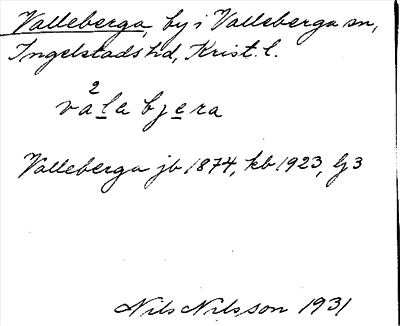 Valleberga, by i Valleberga sn,
Ingelstads hd, Krist. l.
2
va l a b j e ra
Valleberga jb 1874, kb 1923, lj 3
Nils Nilsson 1931